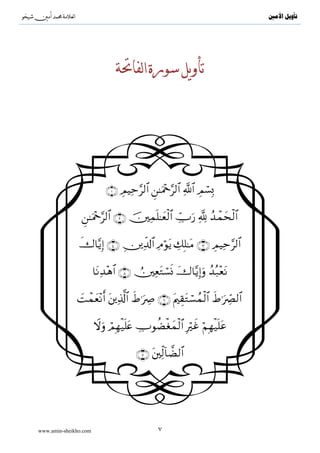 تأويل الأمين العلامة محمد أمين شيخو
تأويل سورة الفاتحة
بِسْمِ ٱللَّهِ ٱلرَّحْمَٰنِ ٱلرَّحِيمِ ۝١
ٱلْحَمْدُ لِلَّهِ رَبِّ ٱلْعَٰلَمِينَ ۝٢ ٱلرَّحْمَٰنِ
ٱلرَّحِيمِ ۝٣ مَٰلِكِ يَوْمِ ٱلدِّينِ ۝٤ إِيَّاكَ
نَعْبُدُ وَإِيَّاكَ نَسْتَعِينُ ۝٥ ٱهْدِنَا
ٱلصِّرَٰطَ ٱلْمُسْتَقِيمَ ۝٦ صِرَٰطَ ٱلَّذِينَ أَنْعَمْتَ
عَلَيْهِمْ غَيْرِ ٱلْمَغْضُوبِ عَلَيْهِمْ وَلَا
ٱلضَّآلِّينَ ۝٧
www.amin-sheikho.com ٧